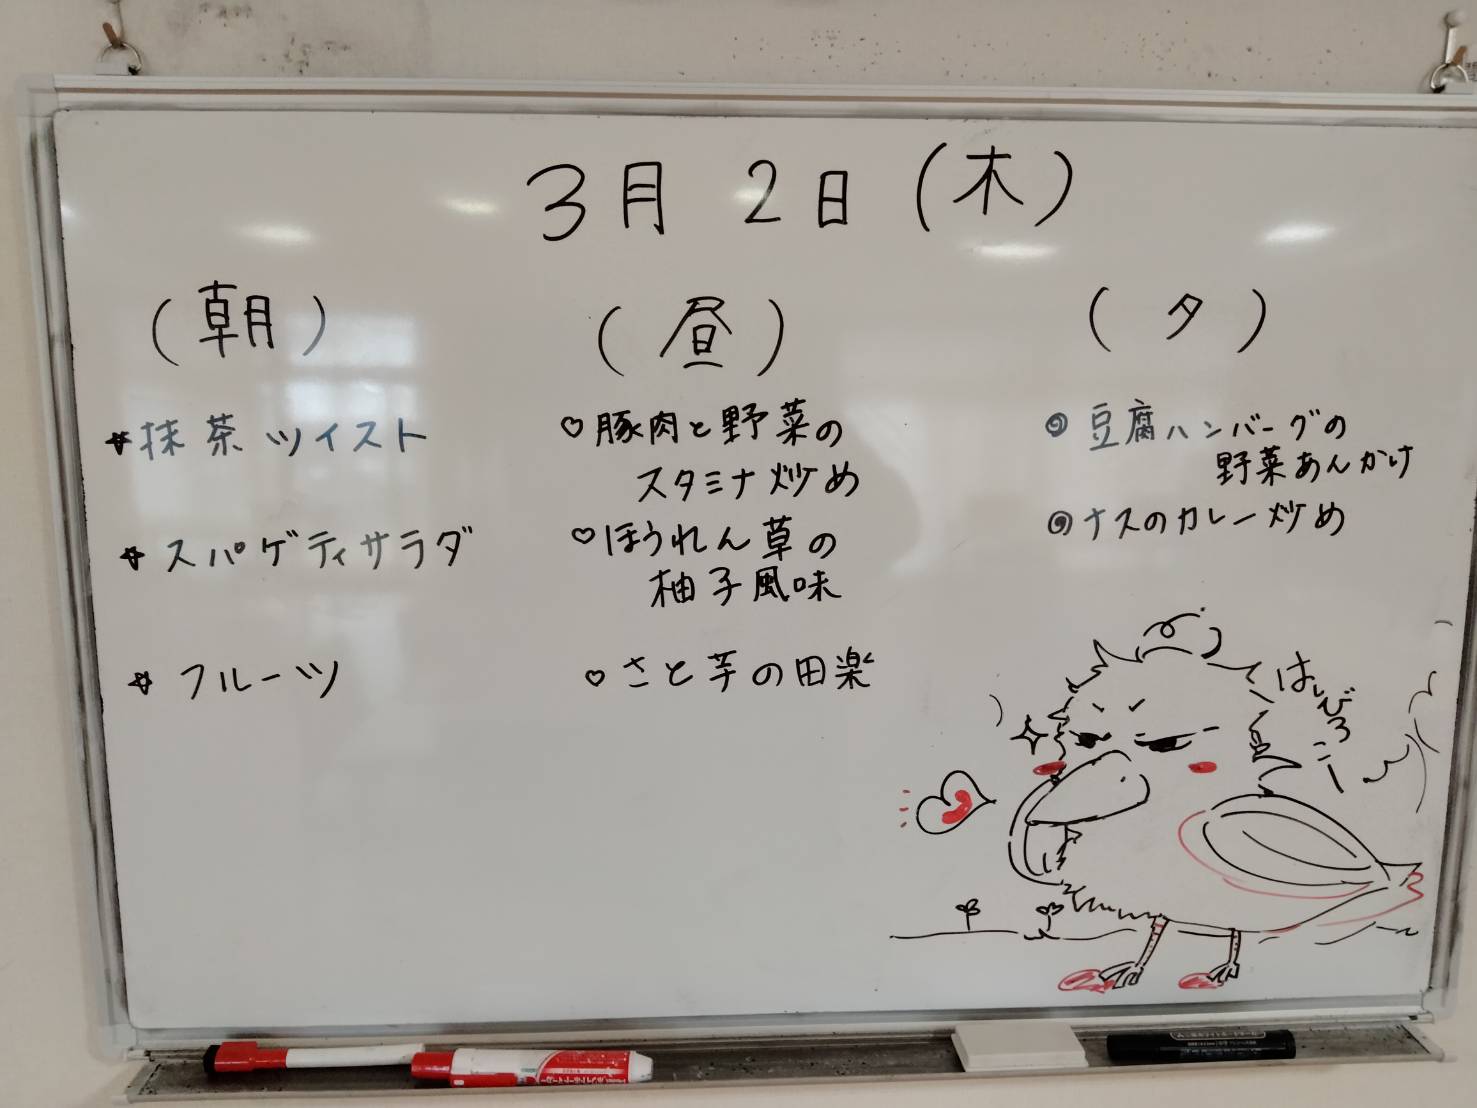 3月 2日 (木)
(朝)
抹茶ツイスト
スパゲティサラダ
フルーツ
(昼)
豚肉と野菜の
スタミナ炒め
ほうれん草の
柚子風味
さと芋の田楽
(夕)
豆腐ハンバーグの
野菜あんかけ
ナスのカレー炒め
はしびろこー